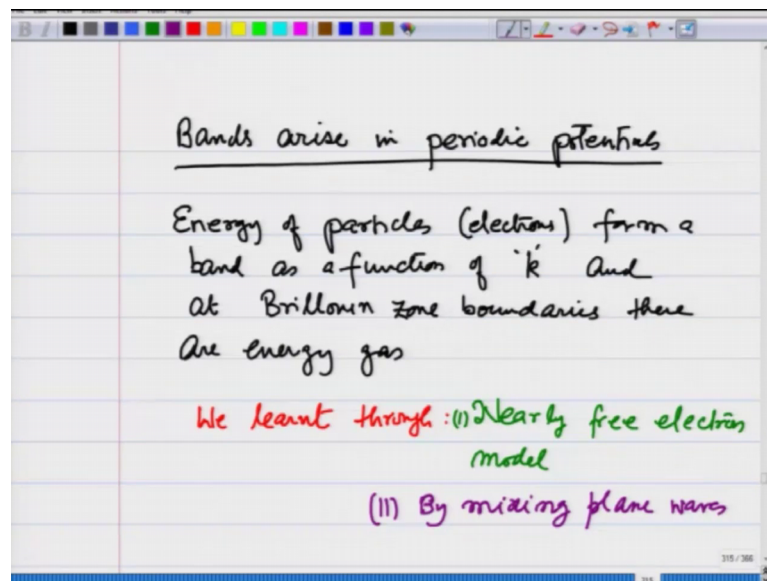 Bands arise in periodic potentials
Energy of particles (electrons) form a
band as a function of 'k' and
at Brillouin zone boundaries there
are energy gas
We learnt through : (i) Nearly free electron
model
(II) By mixing plane waves
315 / 366